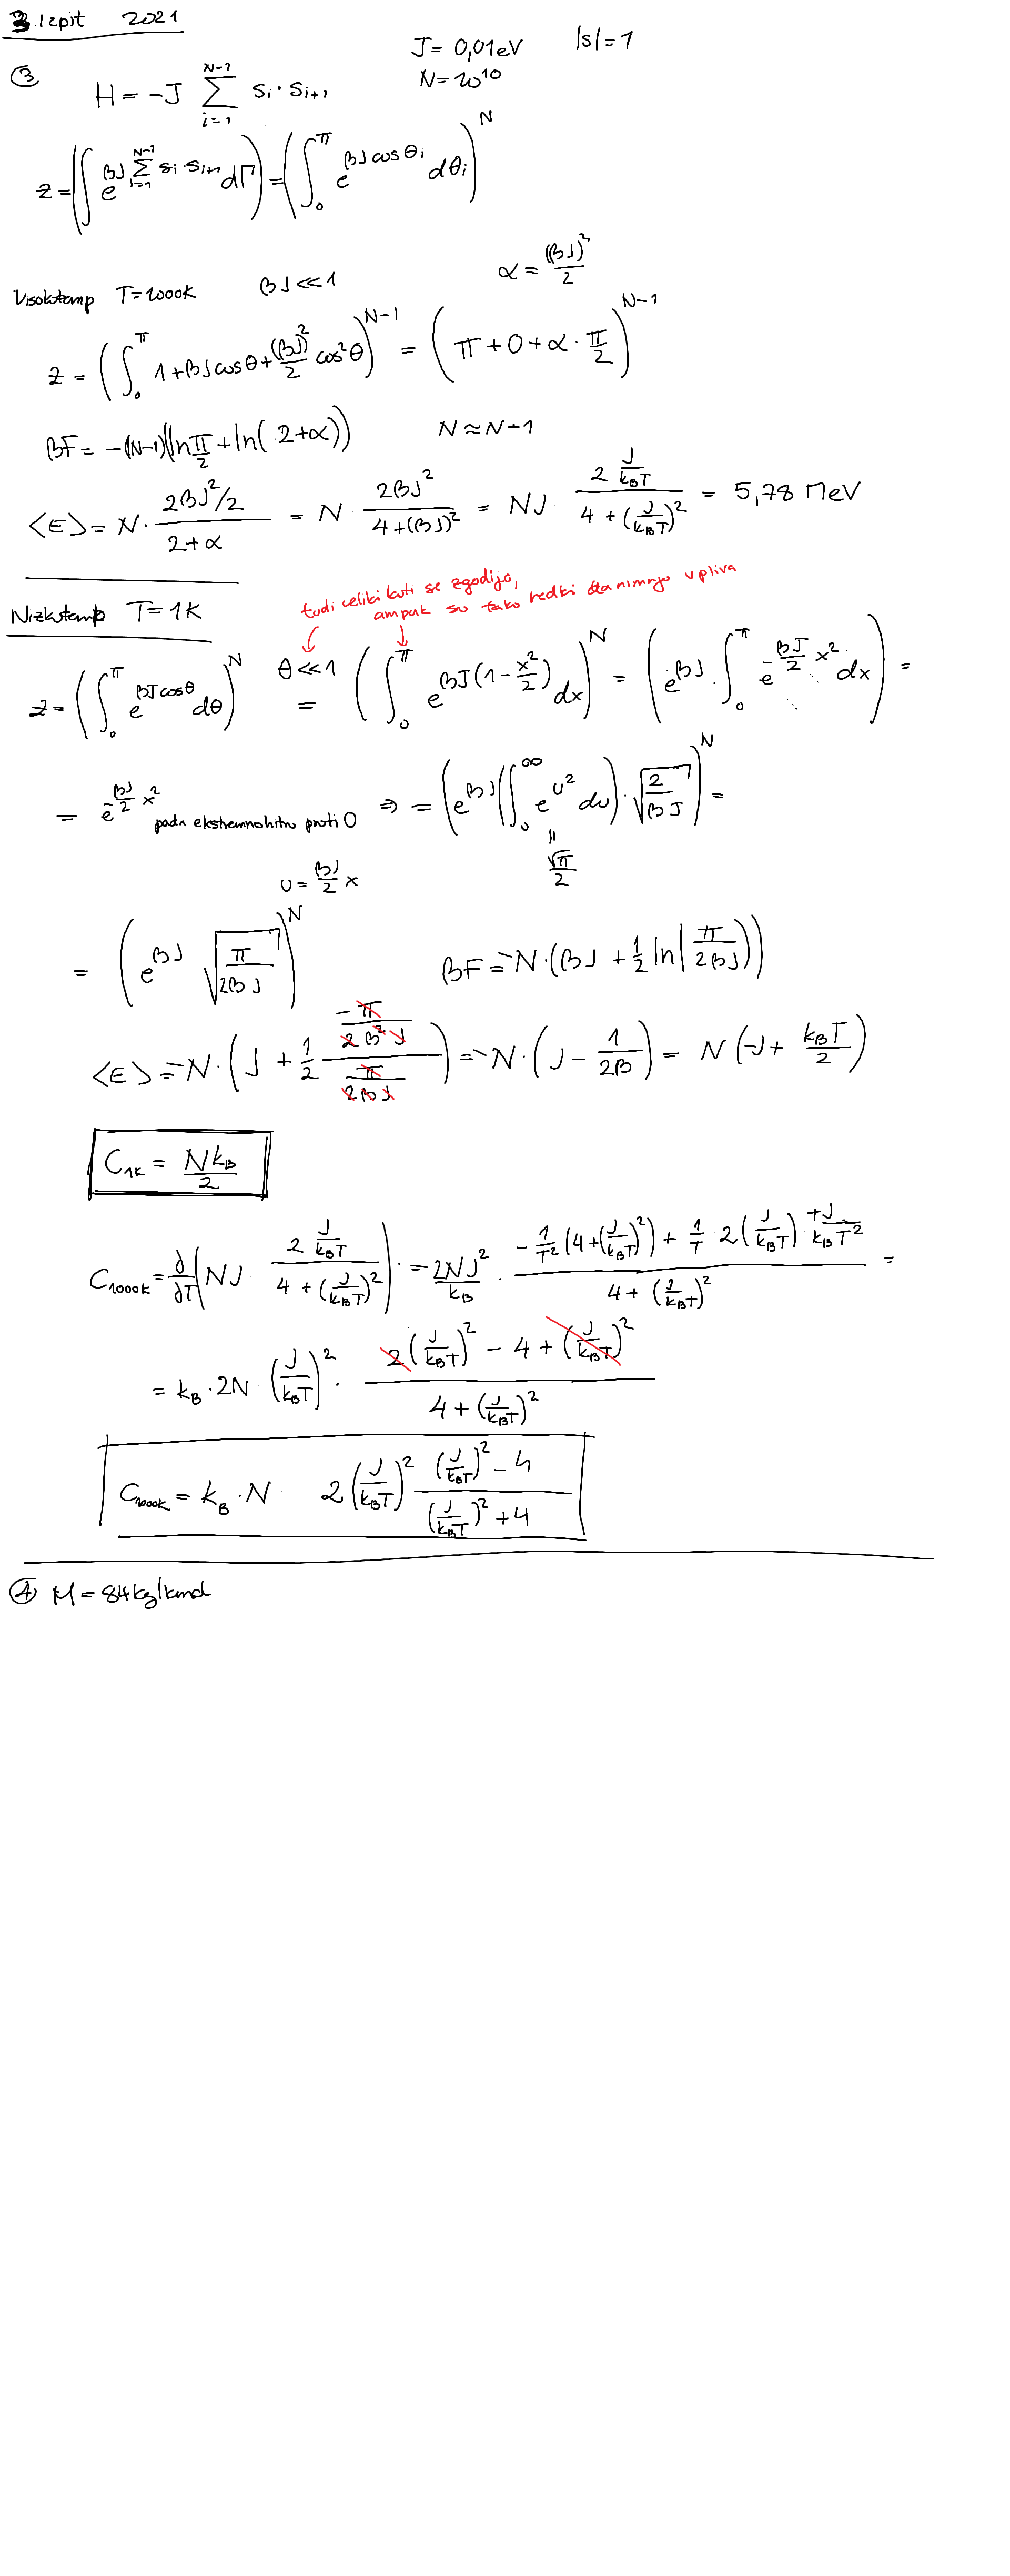 3. Izpit 2021
J = 0,01 eV |s| = 1
③ H = -J ∑_{i=1}^{N-1} s_i · s_{i+1} N = 10^{10}
Z = (∫ e^{βJ ∑_{i=1}^{N-1} s_i · s_{i+1}} dΓ) = (∫_0^π e^{βJ cos θ_i} dθ_i)^N
Visokotemp T = 1000K βJ ≪ 1 α = (βJ)^2/2
Z = (∫_0^π 1 + βJ cos θ + (βJ)^2/2 cos^2 θ)^{N-1} = (π + 0 + α · π/2)^{N-1}
βF = -(N-1)(ln π/2 + ln(2+α)) N ≈ N-1
<E> = N · (2βJ^2/2)/(2+α) = N · 2βJ^2/(4+(βJ)^2) = NJ · (2 J/(k_B T))/(4 + (J/(k_B T))^2) = 5,78 MeV
tudi veliki koti se zgodijo,
ampak so tako redki da nimajo vpliva
Nizkotemp T = 1K
Z = (∫_0^π e^{βJ cos θ} dθ)^N θ≪1 = (∫_0^π e^{βJ(1 - x^2/2)} dx)^N = (e^{βJ} · ∫_0^π e^{-βJ/2 x^2} dx) =
= e^{-βJ/2 x^2} pada ekstremno hitro proti 0 ⇒ = (e^{βJ} (∫_0^∞ e^{u^2} du) · √(2/(βJ)))^N =
√π/2
u = βJ/2 x
= (e^{βJ} √(π/(2βJ)))^N βF = -N · (βJ + 1/2 ln(π/(2βJ)))
<E> = -N · (J + 1/2 (-π/(2β^2 J))/(π/(2βJ))) = -N · (J - 1/(2β)) = N(-J + k_B T/2)
C_{1K} = N k_B/2
C_{1000K} = ∂/∂T (NJ · (2 J/(k_B T))/(4 + (J/(k_B T))^2)) = 2NJ^2/k_B · (-1/T^2 (4 + (J/(k_B T))^2) + 1/T · 2(J/(k_B T)) · +J/(k_B T^2))/(4 + (J/(k_B T))^2) =
= k_B · 2N · (J/(k_B T))^2 · (2(J/(k_B T))^2 - 4 + (J/(k_B T))^2)/(4 + (J/(k_B T))^2)
C_{1000K} = k_B · N · 2(J/(k_B T))^2 ((J/(k_B T))^2 - 4)/((J/(k_B T))^2 + 4)
④ M = 84 kg/kmol